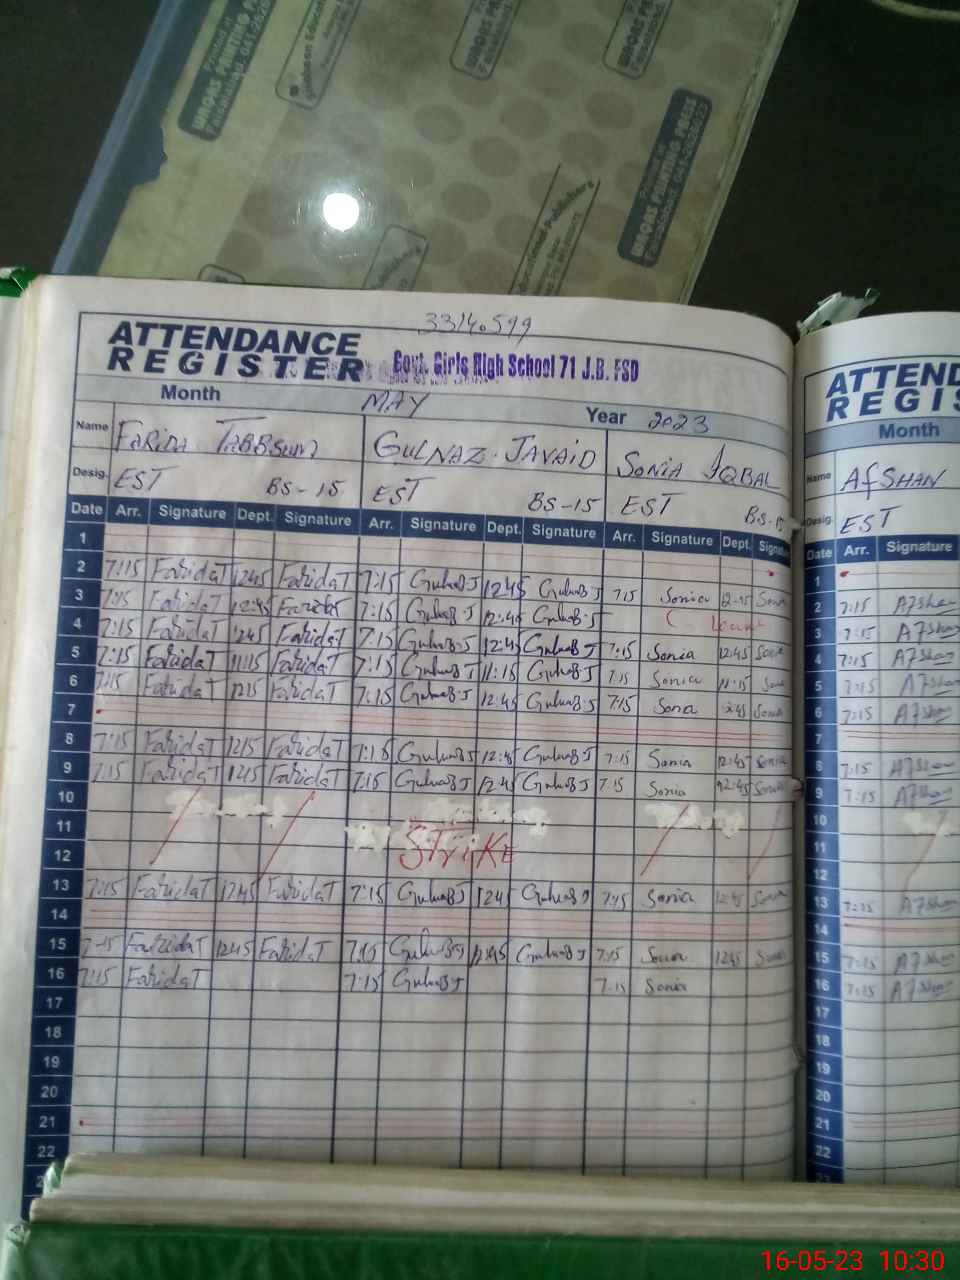 Printed at
WAQAS PRINTING PRESS
WAQAS PRINTING PRESS
Printed at
WAQAS PRINTING PRESS
Faisalabad. 041-2626023
3314.599
ATTENDANCE
REGISTER
Govt. Girls High School 71 J.B. FSD
Month MAY Year 2023
Name FARIDA TABBSUM GULNAZ JAVAID SONIA IQBAL
Desig. EST BS-15 EST BS-15 EST BS-15
Date Arr. Signature Dept. Signature Arr. Signature Dept. Signature Arr. Signature Dept. Signature
1
2 7:15 FaridaT 1245 FaridaT 7:15 GulnaBJ 1245 GulnaBJ 7:15 Sonia 12-45 Sonia
3 7:15 FaridaT 12:45 FaridaT 7:15 GulnaBJ 12:45 GulnaBJ
4 7:15 FaridaT 1245 FaridaT 7:15 GulnaBJ 12:45 GulnaBJ 7:15 Sonia 12:45 Sonia
5 7:15 FaridaT 11:15 FaridaT 7:15 GulnaBJ 11:15 GulnaBJ 7:15 Sonia 11:15 Sonia
6 7:15 FaridaT FaridaT 7:15 GulnaBJ 12:45 GulnaBJ 7:15 Sonia 12:45 Sonia
7
8 7:15 FaridaT FaridaT 7:15 GulnaBJ 12:45 GulnaBJ 7:15 Sonia 12:45 Sonia
9 7:15 FaridaT FaridaT 7:15 GulnaBJ 12:45 GulnaBJ 7:15 Sonia 12:45 Sonia
10
11
STRIKE
12
13 7:15 FaridaT 12:45 FaridaT 7:15 GulnaBJ 1245 GulnaBJ 7:15 Sonia 12:45 Sonia
14
15 7-15 FaridaT 1245 FaridaT 7:15 GulnaBJ 12:45 GulnaBJ 7:15 Sonia 1245 Sonia
16 7:15 FaridaT 7:15 GulnaBJ 7:15 Sonia
17
18
19
20
21
22
ATTEND
REGIS
Month
Name AFSHAN
Desig. EST
Date Arr. Signature
1
2 7:15 Afshan
3 7:15 Afshan
4 7:15 Afshan
5 7:15 Afshan
6 7:15 Afshan
7
8 7:15 Afshan
9 7:15 Afshan
10
11
12
13 7:15 Afshan
14
15 7:15 Afshan
16 7:15 Afshan
17
18
19
20
21
22
23
16-05-23 10:30